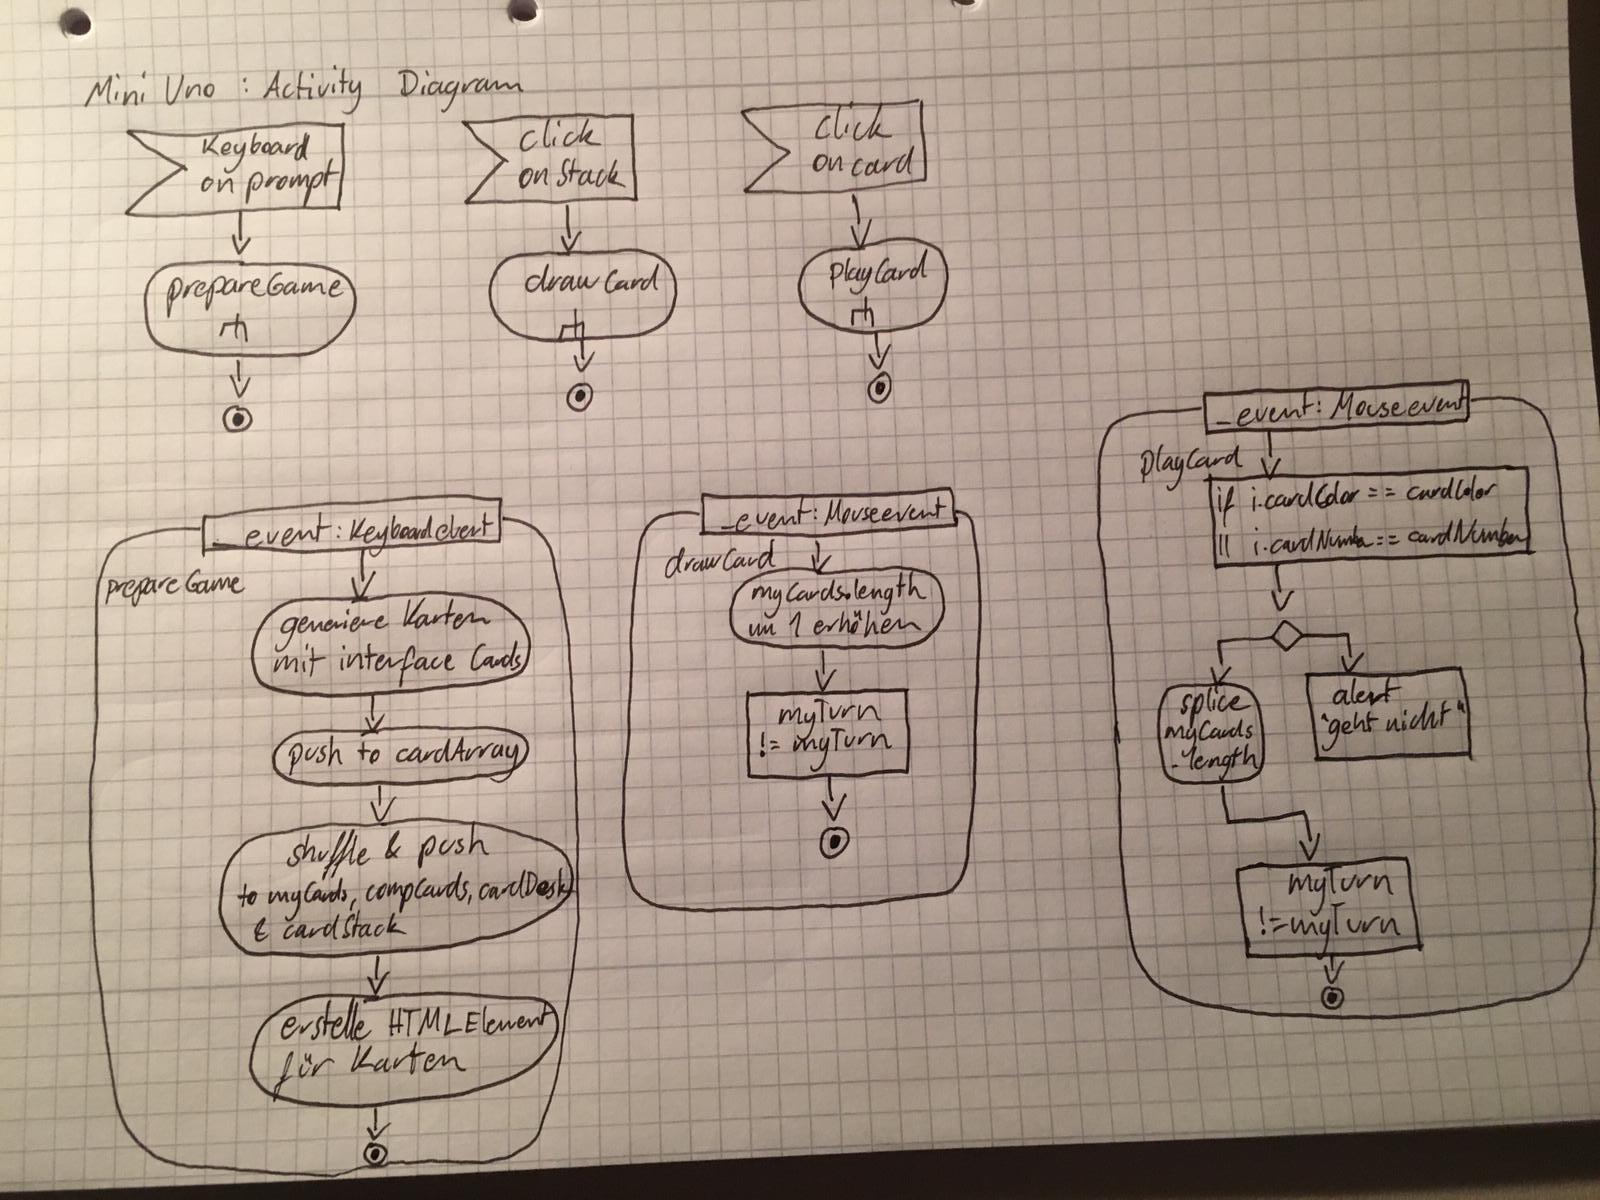 Mini Uno : Activity Diagram
Keyboard
on prompt
prepareGame
click
on Stack
drawCard
click
on card
playCard
_event: Keyboardevent
prepareGame
generiere Karten
mit interface Cards
push to cardArray
shuffle & push
to myCards, compCards, cardDesk
& cardStack
erstelle HTMLElement
für Karten
_event: Mouseevent
drawCard
myCards.length
um 1 erhöhen
myTurn
!= myTurn
_event: Mouseevent
playCard
if i.cardColor == cardColor
|| i.cardNumber == cardNumber
splice
myCards
.length
alert
"geht nicht"
myTurn
!= myTurn